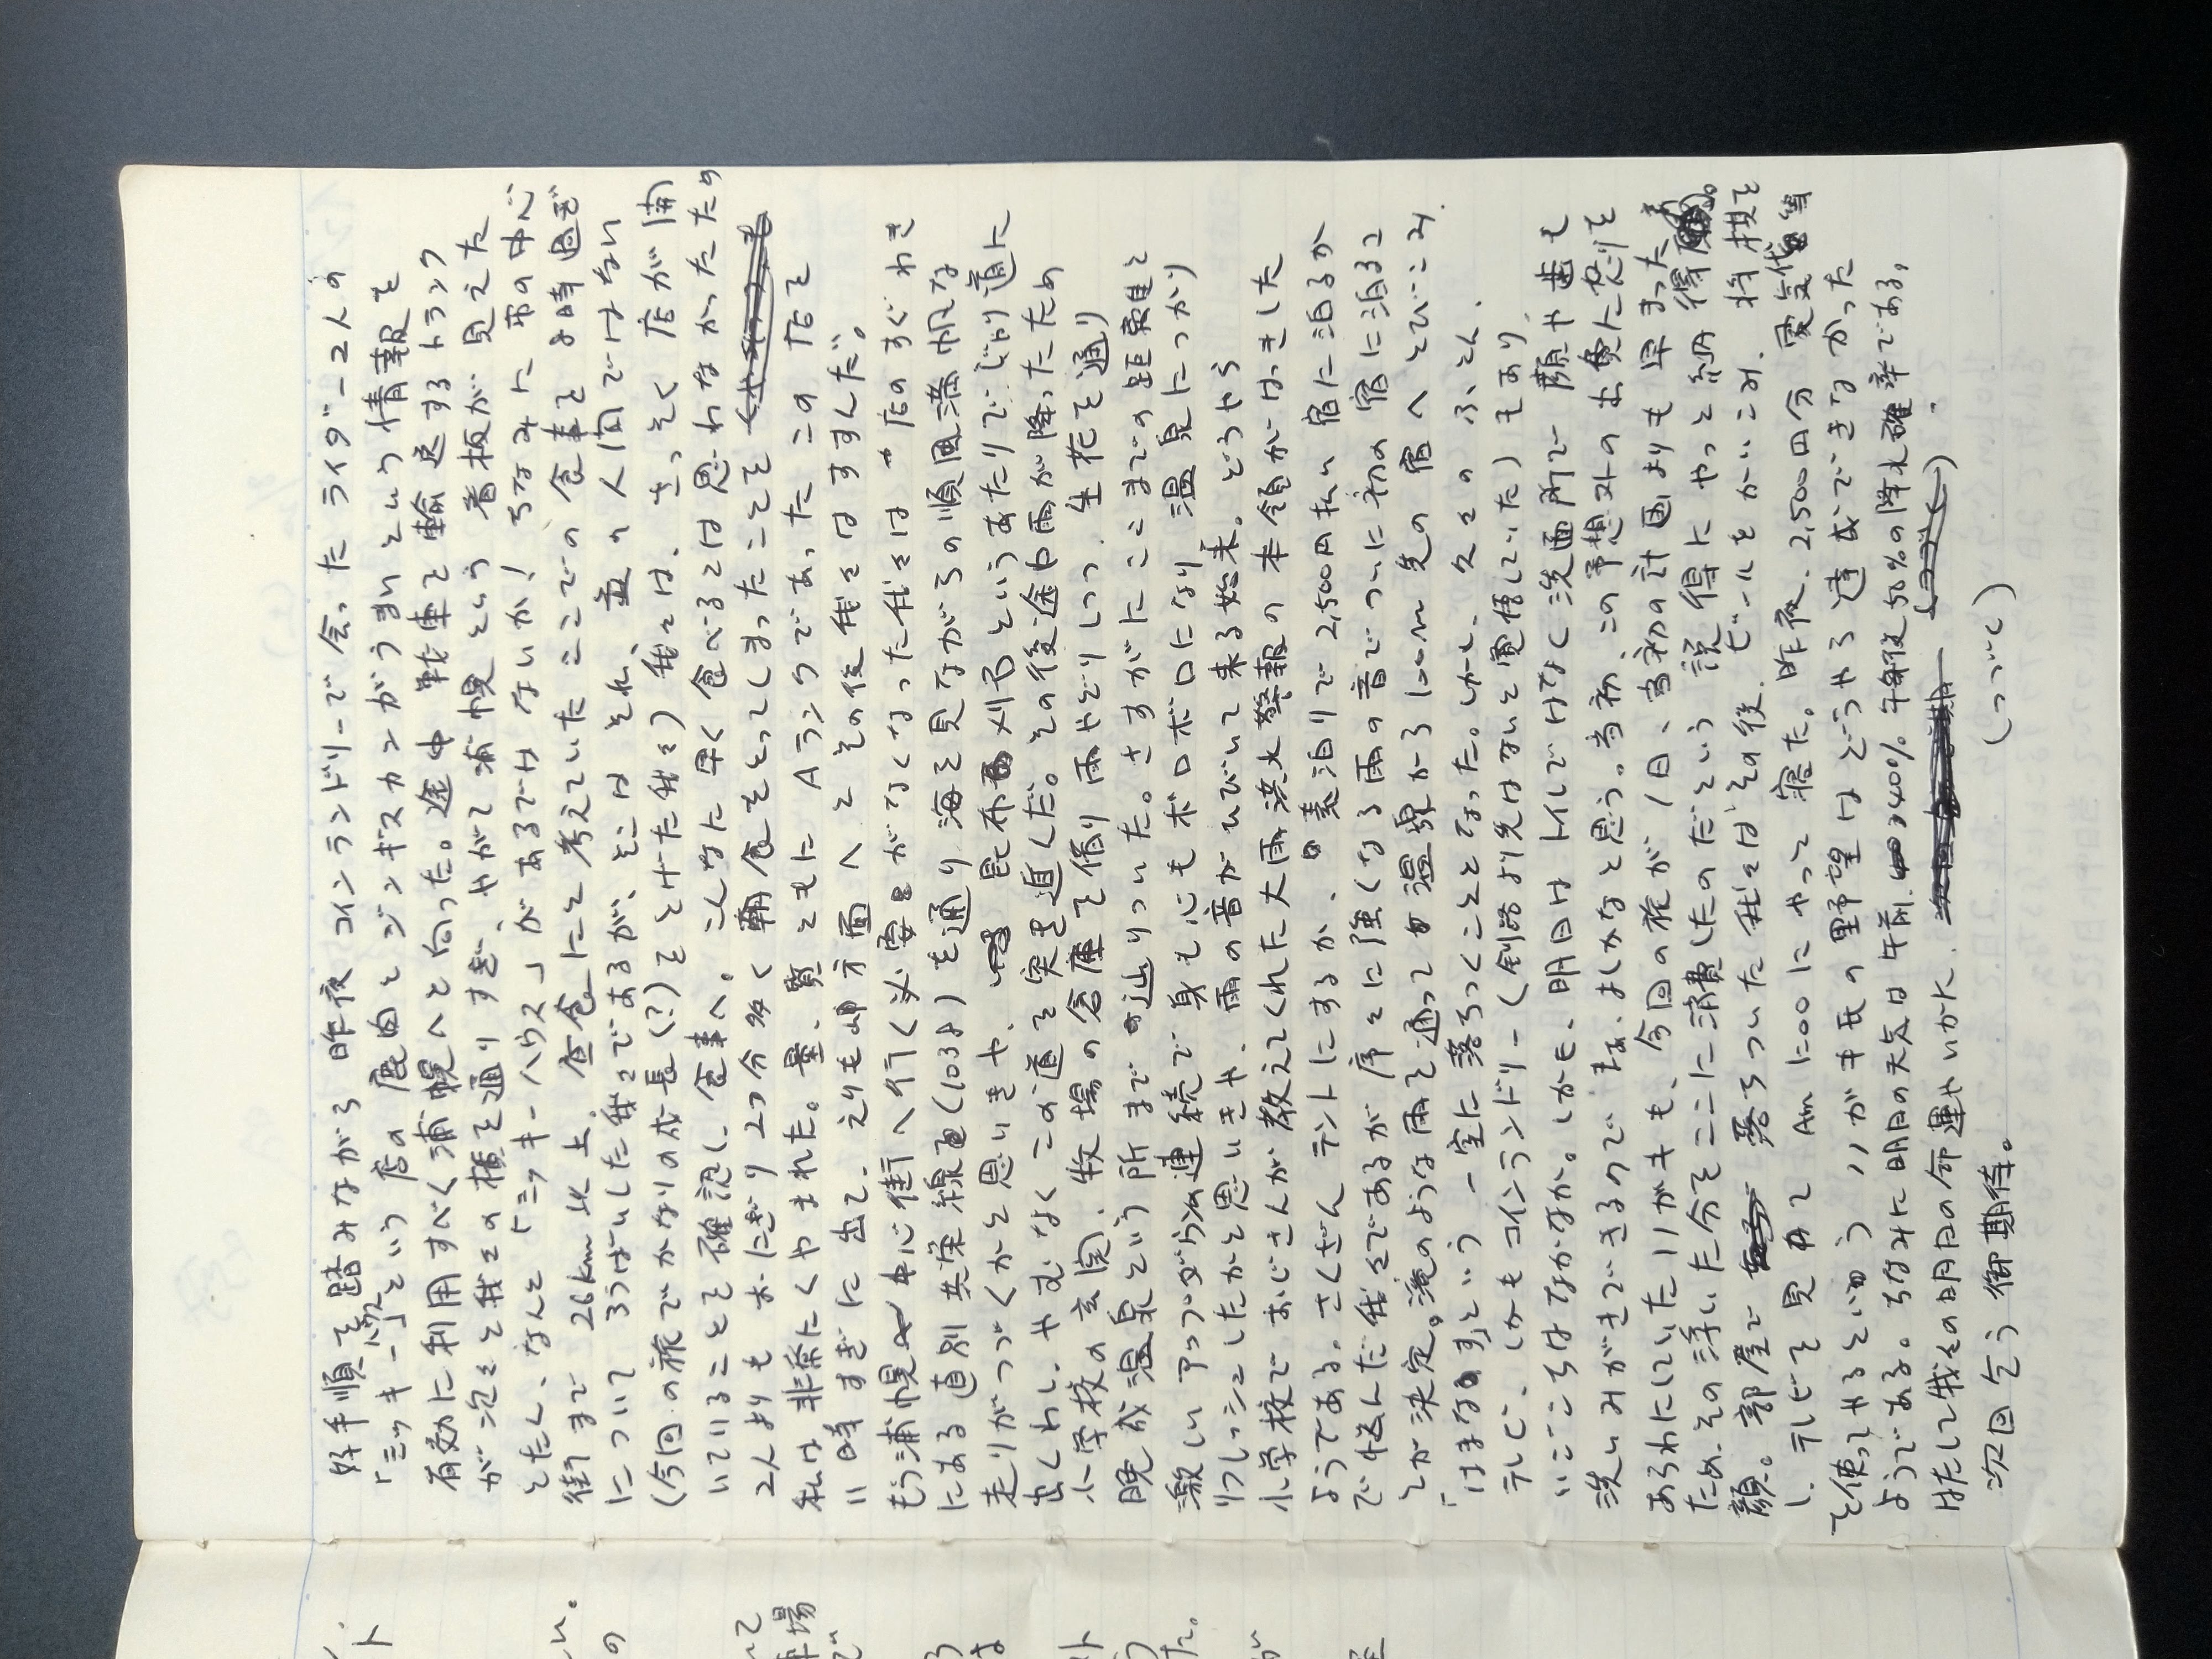 好手順を踏みながら 昨夜 コインランドリーで会った ライダー2人の
「ミッキーハウス」という店の 鹿肉とジンギスカンがうまいという情報を
有効に利用すべく浦幌へと向った。途中 戦車を輸送するトラック
が次々と我々の横を通りすぎ、やがて浦幌という 看板が見えた
とたん、なんと「ミッキーハウス」があるではないか! ちなみに 市の中心
街まで 26km以上、昼食にと考えていた ここでの食事を 時過ぎ
について ろうばいした我々であるが、そこは それ、 の人間ではない
(今回の旅でかなりの成長(?)をとげた我々) 我々は、さっそく 店が開
いていることを確認し、食事へ。こんなに早く食べるとは思わなかったため
2人よりも おにぎり2つ分多く朝食をとってしまったことを
私は非常にくやまれた。量、質ともに Aランクであった この店を
11時すぎに出て、えりも岬方面へとその後我々はすすんだ。
もう浦幌中心街へ行く必要がなくなった我々は 店のすぐわき
にある 直別共栄線道(1038)を通り 海を見ながらの順風満帆な
走りがつづくかと思いきや、昆布刈石というあたりで じゃり道に
出くわし、やむなく この道を突き進んだ。その後途中雨が降ったため
小学校の玄関、牧場の倉庫を借り 雨やどりしつつ、生花を通り
晩成温泉という所まで辿りついた。さすがに ここまでの距離と
激しいアップダウンの連続で 身も心もボロボロになり 温泉につかり
リフレッシュしたかと思いきや、雨の音がひびいて来る始末。どうやら
小学校でおじさんが教えてくれた大雨洪水警報の本領がはっきした
ようである。さくぜん テントにするか、素泊りで2,500円払い 宿に泊るか
で悩んだ我々であるが 序々に強くなる雨の音で ついに初の宿に泊るこ
とが決定。滝のような雨を通って 温泉から100m先の宿へとびこみ、
「はまなす」という一室に落ちつくこととなった。しかし、久々の ふとん、
テレビ、しかもコインランドリー(釧路より先はないと覚悟していた)もあり、
いごこちはなかなか。しかも、明日はトイレではなく洗面所で 顔や歯も
洗いみがきできるので まあ、よしかなと思う。当初、この予想外の出費に怒りを
あらわにしていた11ガキも、今回の旅が1日、当初の計画よりも早まった
ため、その浮いた分をここに消費したのだという説得に やっと納得
顔。部屋で 落ちついた我々はその後、ビールをかいこみ、将棋を
し、テレビを見て Am 1:00にやっと寝た。昨夜、2,500円分 電気代
を使ってやるという 11ガキ氏の野望はどうやら達成できなかった
ようである。ちなみに明日の天気は午前40% 午後50%の降水確率である。
はたして我々の明日の命運やいかに、
(つづく)
次回乞う御期待。